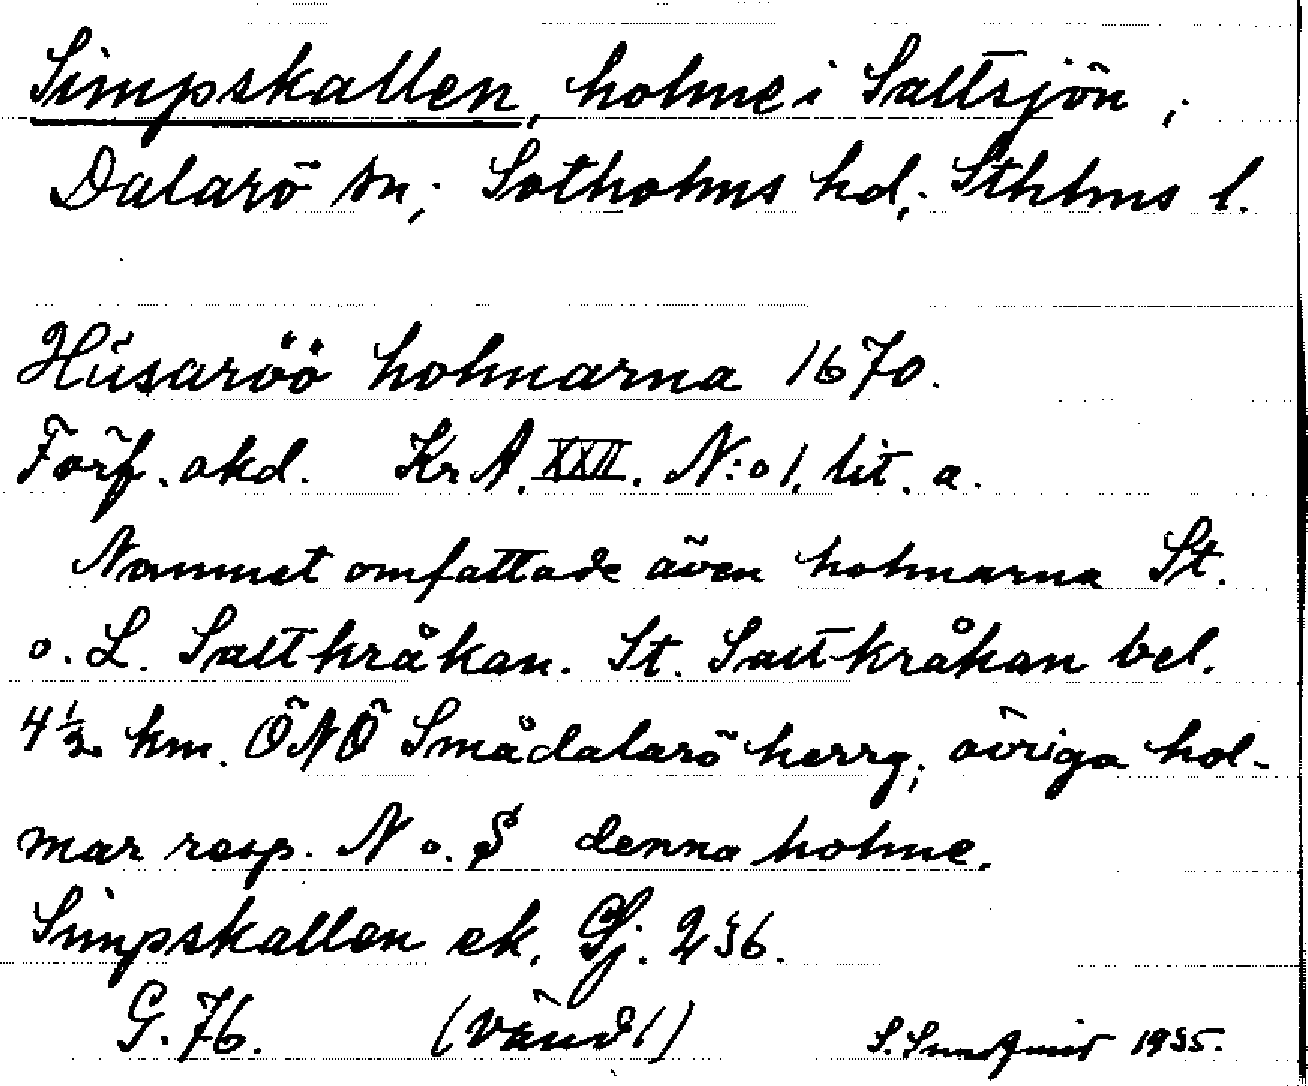 Simpskallen, holme i Saltsjön,
Dalarö sn, Sotholms hd, Sthlms l.
Hüsaröö holmarna 1670.
Förf. akd. Kr A. XXII. N:o 1. lit. a.
Namnet omfattade även holmarna St.
o. L. Saltkråkan. St. Saltkråkan bel.
4 1/2 km. ÖNÖ Smådalarö herrg; övriga hol-
mar resp. N o. S denna holme.
Simpskallen ek. Gj. 236.
G. 76. (Vänd!)
S. 1935.